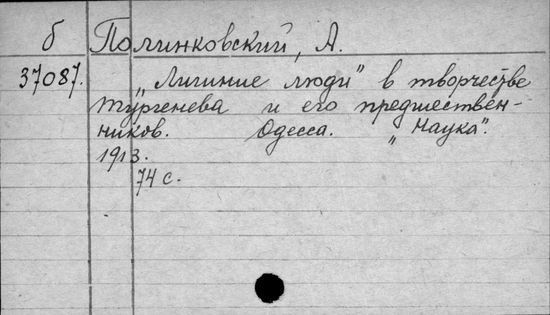 б Полинковский, А.
37087. „Лишние люди" в творчестве
Тургенева и его предшествен-
ников. Одесса. „Наука".
1913.
74 с.